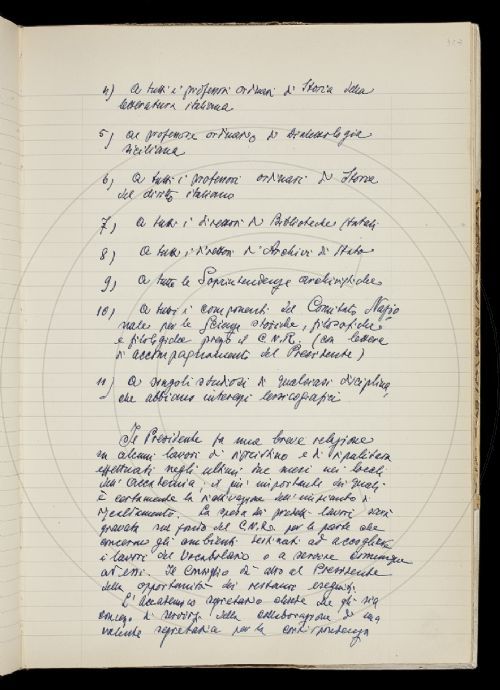 4) A tutti i professori ordinari di Storia della
letteratura italiana
5) Al professore ordinario di Dialettologia
siciliana
6) A tutti i professori ordinari di Storia
del diritto italiano
7) A tutti i direttori di Biblioteche statali
8) A tutti i direttori di Archivi di Stato
9) A tutte le Soprintendenze archivistiche
10) A tutti i componenti del Comitato Nazio
nale per le Scienze storiche, filosofiche
e filologiche presso il C.N.R. (con lettera
di accompagnamento del Presidente)
11) A singoli studiosi di qualsiasi disciplina,
che abbiano interessi lessicografici
Il Presidente fa una breve relazione
su alcuni lavori di ripristino e di ripulitura
effettuati negli ultimi due mesi nei locali
dell'Accademia; il più importante dei quali
è certamente la riattivazione dell'impianto di
riscaldamento. La spesa dei predetti lavori sarà
gravata sui fondi del C.N.R. per la parte che
concerne gli ambienti destinati ad accogliere
i lavori del Vocabolario o a servire comunque
ad essi. Il Consiglio dà atto al Presidente
della opportunità dei restauri eseguiti.
L'Accademico segretario chiede che gli sia
concesso di servirsi della collaborazione di una
valente segretaria per la corrispondenza